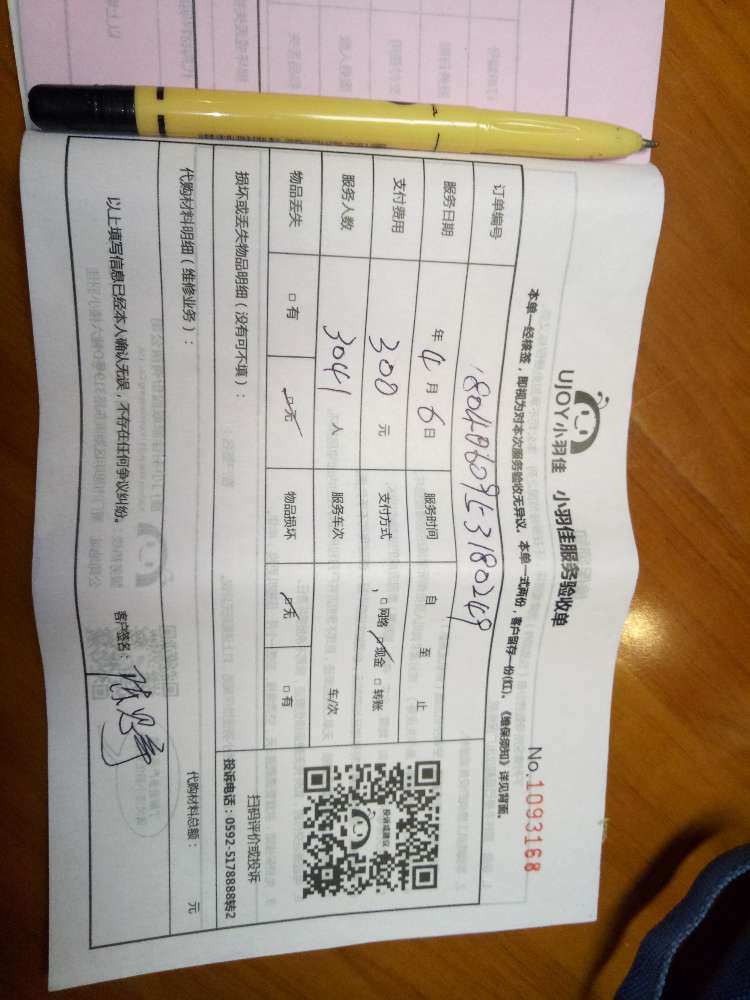 UJOY小羽佳 小羽佳服务验收单
No.1093168
本单一经核签，即视为对本次服务验收无异议。本单一式两份，客户留存一份(红)。《维保须知》详见背面。
订单编号
服务日期 年 4 月 6 日 服务时间 自 至 止
支付费用 300 元 支付方式 □网络 □现金 □转账
服务人数 3041 人 服务车次 车/次
物品丢失 □有 □无 物品损坏 □无 □有
投诉或建议
扫码评价或投诉
投诉电话：0592-5178888转2
损坏或丢失物品明细（没有可不填）：
代购材料明细（维修业务）：
代购材料总额： 元
以上填写信息已经本人确认无误，不存在任何争议纠纷。 客户签名：